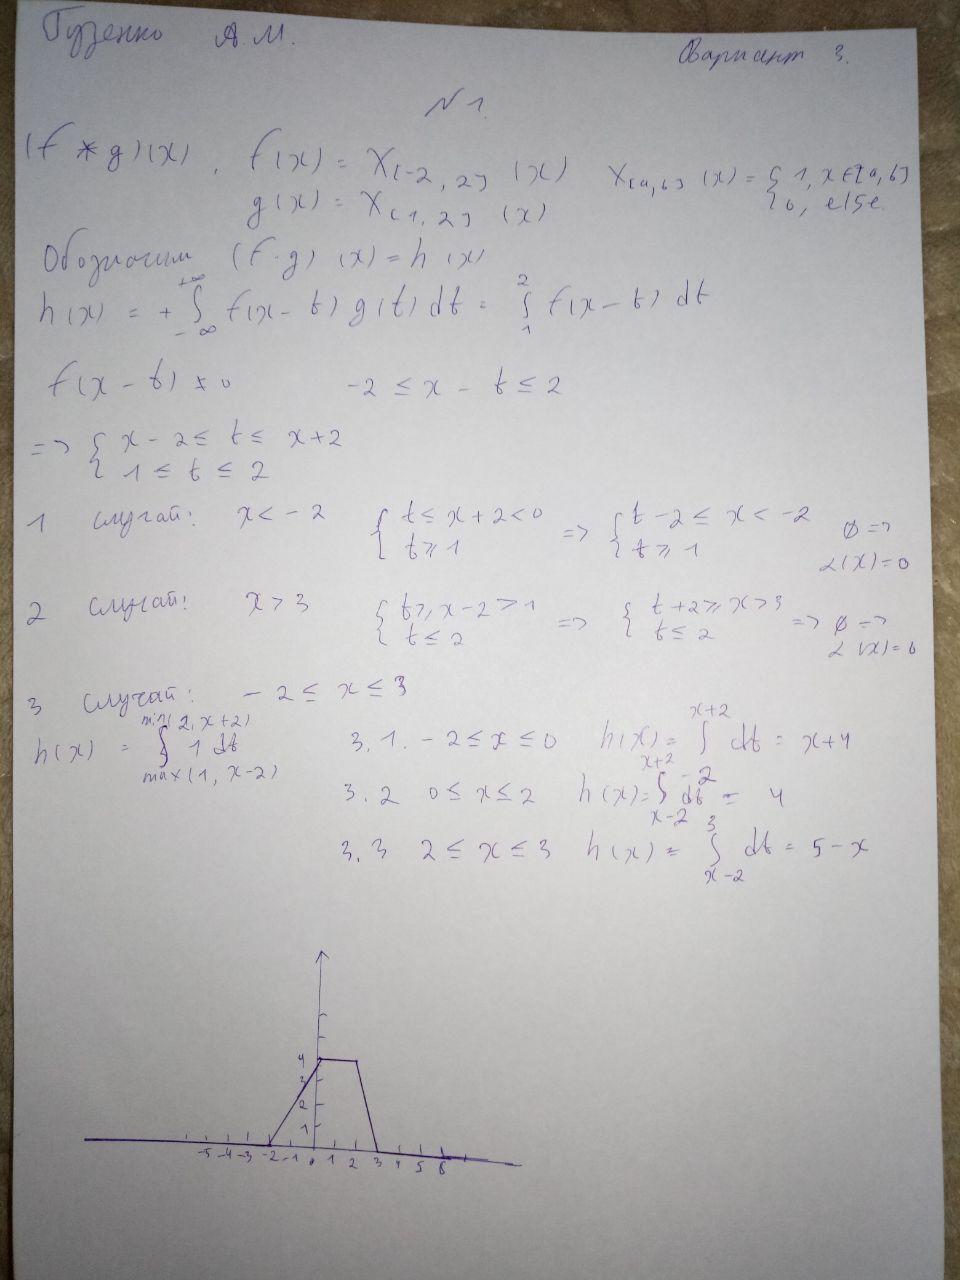 Гузенко А.М.
Вариант 3.
N 1.
(f * g)(x), f(x) = X[-2, 2] (x) X[a,b] (x) = { 1, x ∈ [a,b]
g(x) = X[1, 2] (x) 0, else
Обозначим (f·g) (x) = h(x)
h(x) = + ∫ -∞ +∞ f(x-t) g(t) dt = ∫ 1 2 f(x-t) dt
f(x-t) ≠ 0 -2 ≤ x - t ≤ 2
=> { x - 2 ≤ t ≤ x+2
1 ≤ t ≤ 2
1 случай: x < -2 { t ≤ x+2 < 0 => { t-2 ≤ x < -2 ∅ =>
t ≥ 1 t ≥ 1 2(x)=0
2 случай: x > 3 { t ≥ x-2 > 1 => { t+2 ≥ x > 3 => ∅ =>
t ≤ 2 t ≤ 2 2(x)=0
3 случай: -2 ≤ x ≤ 3
h(x) = ∫ max(1, x-2) min(2, x+2) 1 dt 3.1. -2 ≤ x ≤ 0 h(x) = ∫ -2 x+2 dt = x+4
3.2 0 ≤ x ≤ 2 h(x) = ∫ x-2 x+2 dt = 4
3.3 2 ≤ x ≤ 3 h(x) = ∫ x-2 3 dt = 5-x
4
3
2
1
-5 -4 -3 -2 -1 0 1 2 3 4 5 6